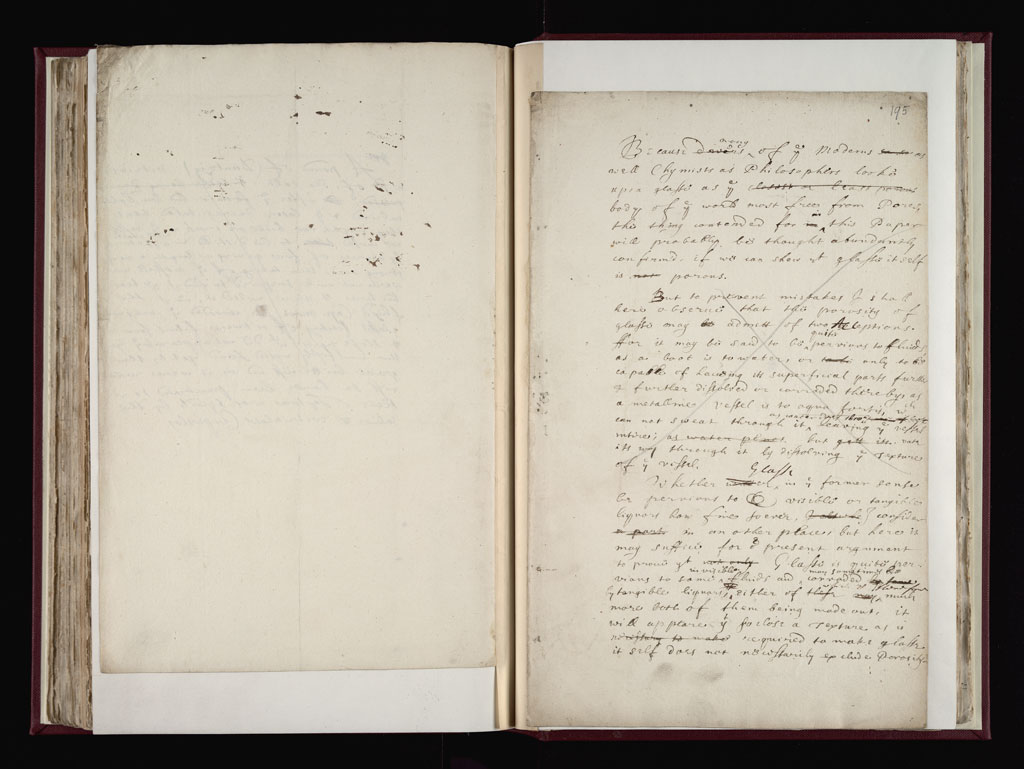 195
Because many of ye Moderns as
well Chymists as Philosophers looke
upon glasse as ye closest or least porous
body, of ye world most free from Pores,
this thing contended for in this Paper
will probably be thought abundantly
confirmd, if we can show yt glasse it self
is not porous.
But to prevent mistakes I shall
here observe that this porosity of
glasse may admitt of two Acceptions.
ffor it may be said to be quite pervious to fluids
as a boot is to water, or only to be
capable of having its superficial parts further
& further dissolved or corroded thereby; as
a metalline vessel is to aqua fortis, wch
can not sweat through it, leaving ye vessel
intire; as water but
its way through it by dissolving ye Texture
of ye vessel.
Whether Glasse in ye former sense
be pervious to visible or tangible
liquors how fine soever, I consider
a part in another place; but here it
may suffice for ye present argument
to prove yt not only Glasse is quite per-
vious to some invisible fluids and may sometimes be corroded by some
tangible liquors, either of much
more both of them being made out, it
will appeare yt so close a Texture as is
necessary to make required to make glasse
it self does not necessarily exclude Porosity.